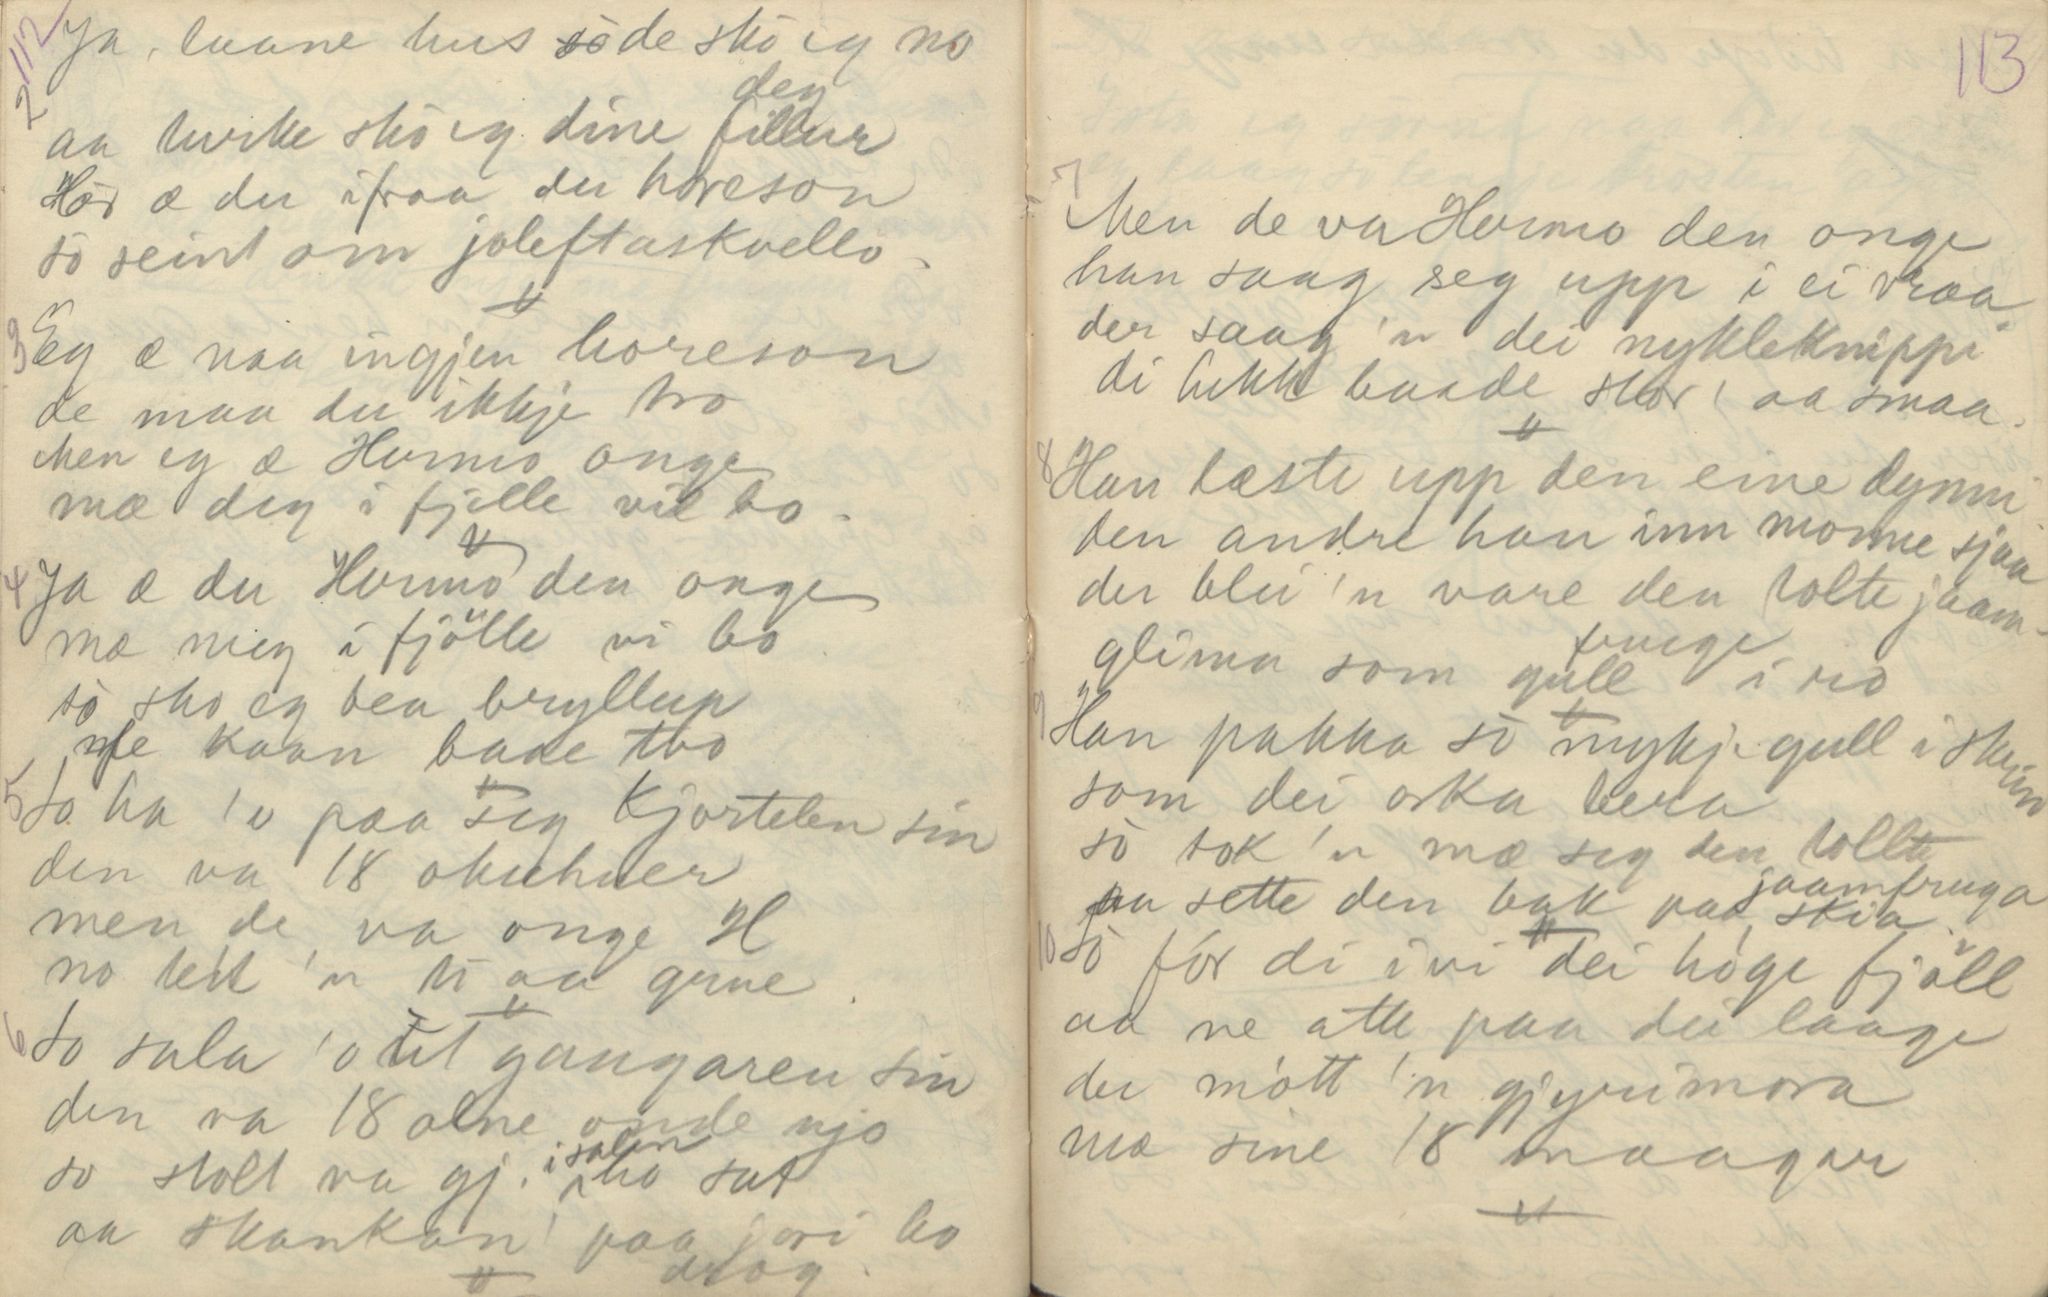 112
2 Ja, laane hus söde skö eg no
deg
aa turke skö eg dine filler
Hör æ du ifraa du horeson
sö seint om joleftaskvello.
3 Eg æ naa ingjen horeson
de maa du ikkje tro
Men eg æ Hermo onge
mæ deg i fjelle vil bo.
4 Ja æ du Hermo den onge
mæ meg i fjölle vi bo
sö sko eg bea bryllup
me kaan baae tvo
5 So ha 'o paa seg kjortelen sin
den va 18
men de va onge H
no leit 'n ti aa grine.
6 So sala 'o ut gangaren sin
den va 18 alne onde njo
so stolt va gj. i salen ho sat
aa skankan' paa jori lo
drog.
113
7 Men de va Hermo den onge
han saag seg upp i ei vraa
der saag 'n dei nykleknippi
di lukk baade stor' aa smaa.
8 Han læste upp den eine dynni
den andre han inn monne sjaa
der blei 'n vare den tolte jaam-
fruge
glima som gull i ro
9 Han pakka sö mykje gull i skrin
som dei orka bera
sö tok 'n mæ seg den tollte
jaamfruga
aa sette den bak paa skia.
10 Sö fór di ivi dei höge fjöll
aa ne att paa dei laage
der mött 'n gjyrimora
mæ sine 18 maagar